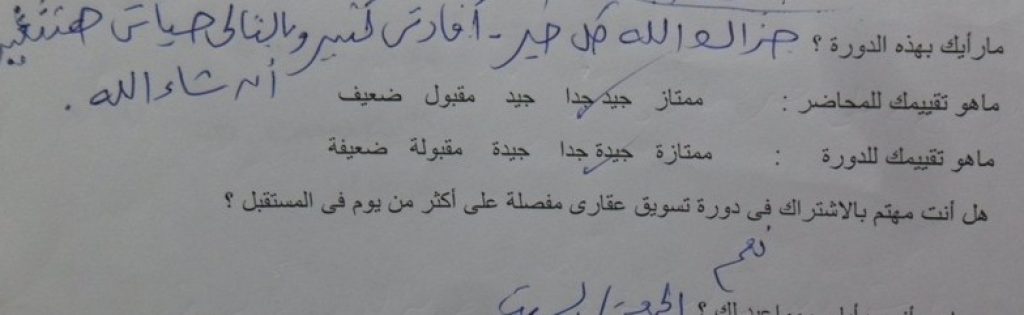 مارأيك بهذه الدورة ؟ جزاك الله كل خير - أفادتنى كتير وبالتالى حياتى هتتغير
أن شاء الله .
ماهو تقييمك للمحاضر : ممتاز جيد جدا جيد مقبول ضعيف
ماهو تقييمك للدورة : ممتازة جيدة جدا جيدة مقبولة ضعيفة
هل أنت مهتم بالاشتراك فى دورة تسويق عقارى مفصلة على أكثر من يوم فى المستقبل ؟
نعم
لك ؟ الجمعة / السبت